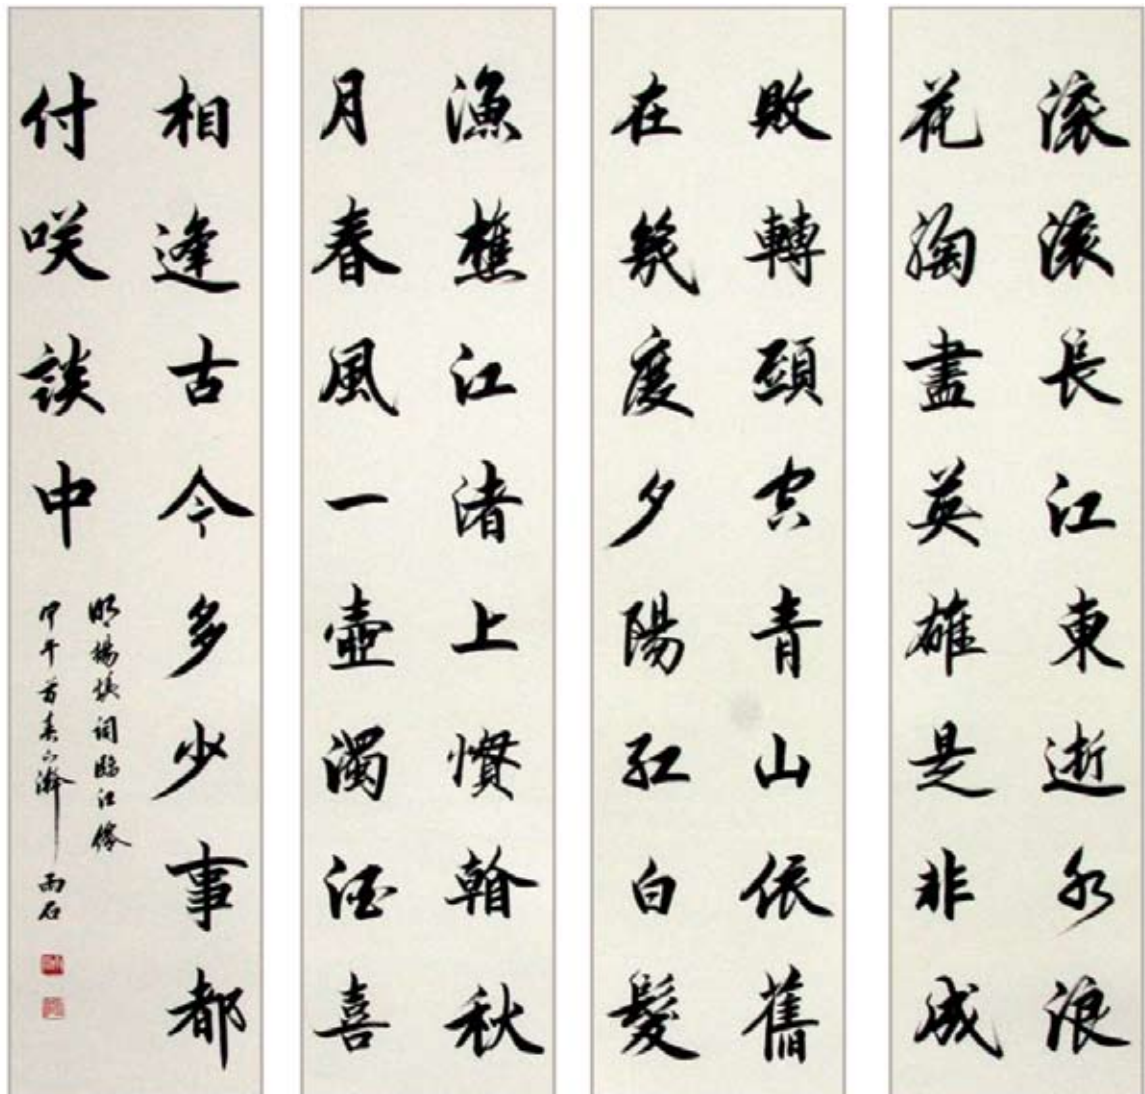 滚滚長江東逝水浪
花淘盡英雄是非成
敗轉頭空青山依舊
在幾度夕陽紅白髮
漁樵江渚上慣翰秋
月春風一壺濁酒喜
相逢古今多少事都
付咲談中
明楊慎詞臨江僊
甲午首春雨石